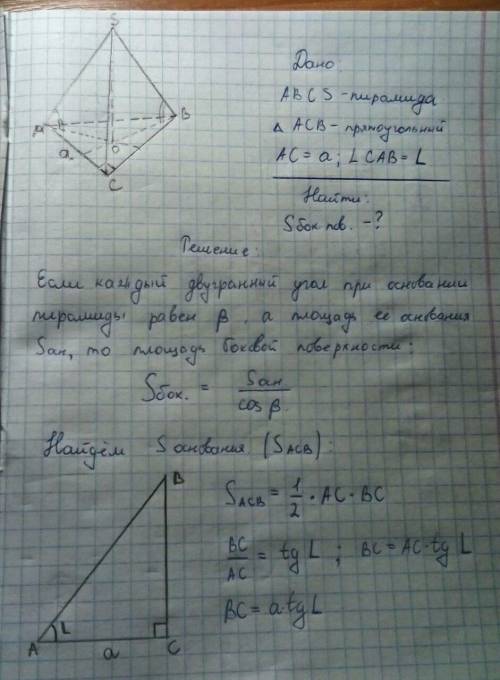 S
A
B
O
a
C
Дано:
ABCS - пирамида
Δ ACB - прямоугольный
AC = a; ∠ CAB = L
Найти:
Sбок пов. - ?
Решение:
Если каждый двугранный угол при основании
пирамиды равен β, а площадь ее онования
Sон, то площадь боковой поверхности:
Sбок. = Sон / cos β
Найдём S онования (SACB):
B
A
L
a
C
SACB = 1/2 · AC · BC
BC/AC = tg L ; BC = AC · tg L
BC = a · tg L